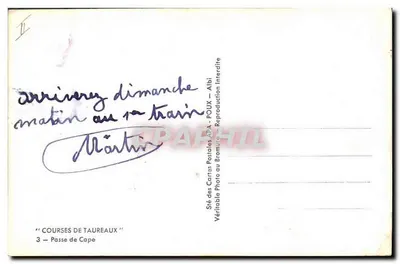 II
arriverez dimanche
matin au 1er train
Martin
" COURSES DE TAUREAUX "
3 — Passe de Cape
Sté des Cartes Postales APA - POUX - Albi
Véritable Photo au Bromure - Reproduction Interdite